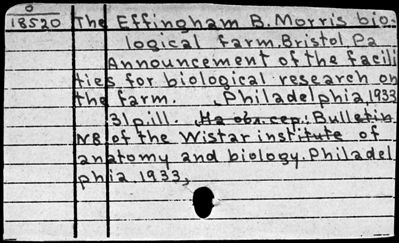 0
18520
The Effingham B. Morris bio-
logical farm. Bristol Pa
Announcement of the facili
ties for biological research on
the farm. Philadelphia 1933
31p ill. На обл. сер.: Bulletin
N8 of the Wistar institute of
anatomy and biology. Philadel
phia 1933,